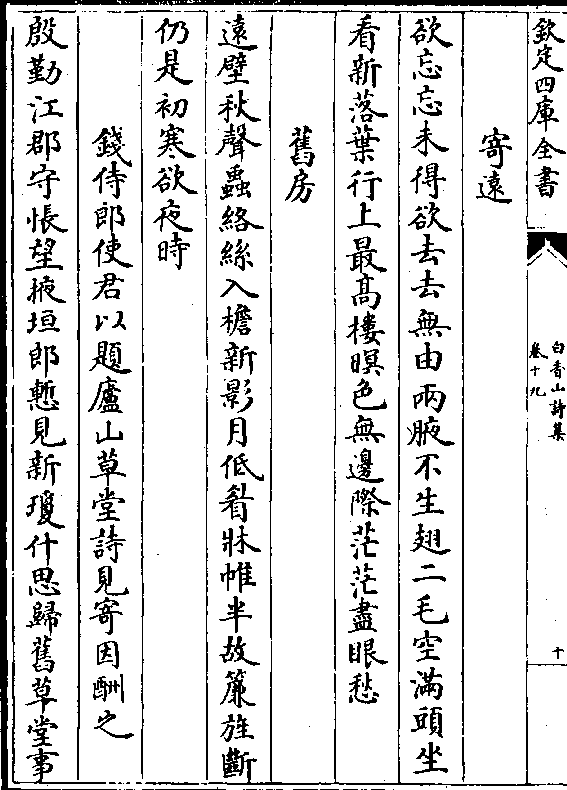 欽定四庫全書
白香山詩集
卷十九
十
寄遠
欲忘忘未得欲去去無由兩腋不生翅二毛空滿頭坐
看新落葉行上最高樓暝色無邊際茫茫盡眼愁
舊房
遠壁秋聲蟲絡絲入檐新影月低眉牀帷半故簾旌斷
仍是初寒欲夜時
錢侍郎使君以題廬山草堂詩見寄因酬之
殷勤江郡守悵望掖垣郎慙見新瓊什思歸舊草堂事